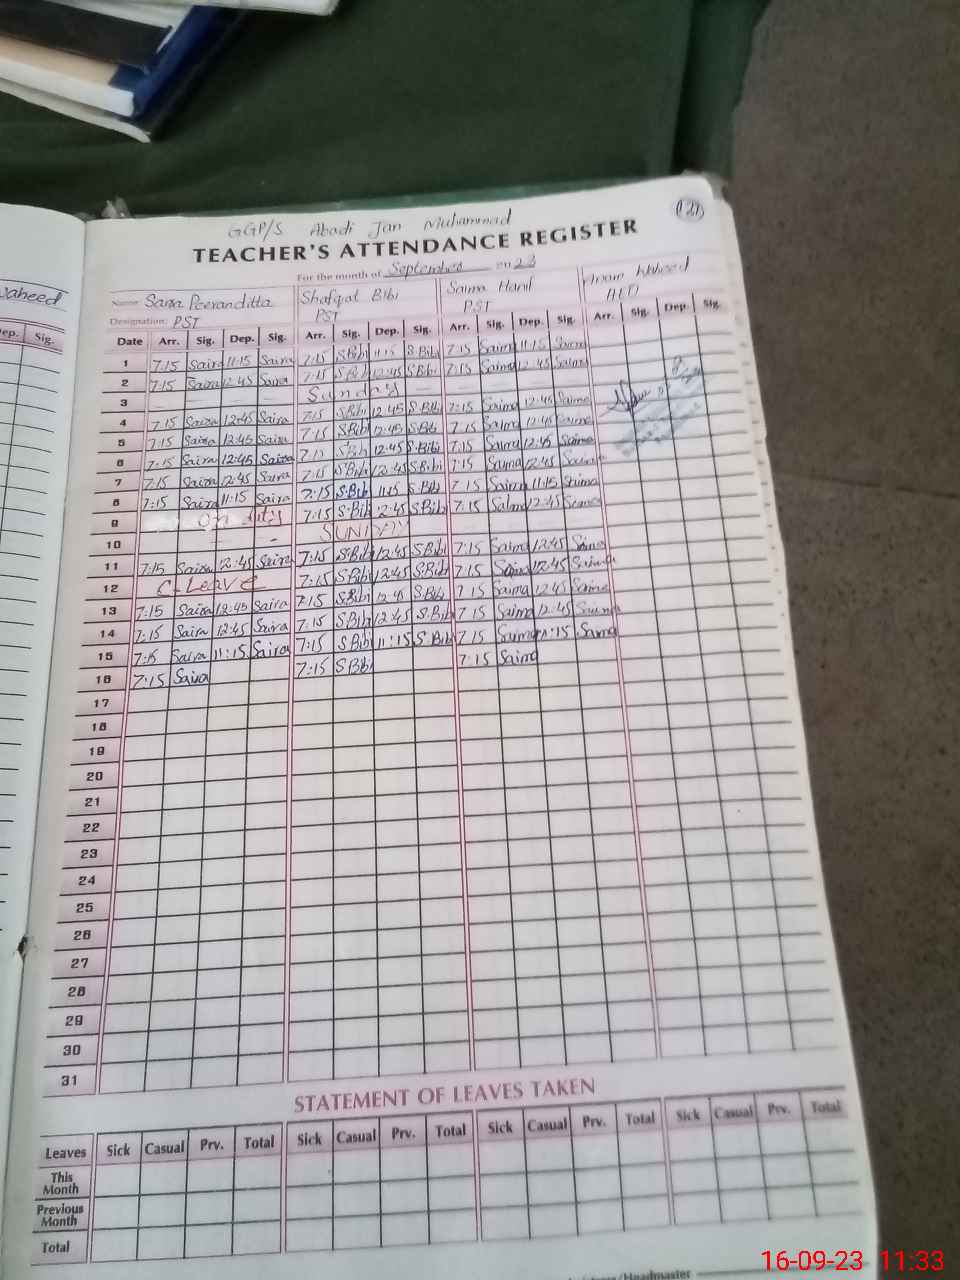 GGP/S Abadi Jan Muhammad
TEACHER'S ATTENDANCE REGISTER
For the month of September 20 23
waheed
Name Saira Peeranditta Shafqat Bibi Saima Hanif Anam Waheed
Designation: PST PST PST
ep. Sig.
Date Arr. Sig. Dep. Sig. Arr. Sig. Dep. Sig. Arr. Sig. Dep. Sig. Arr. Sig. Dep. Sig.
1 7:15 Saira 11:15 Saira 7:15 S.Bibi 11:15 S.Bibi 7:15 Saima 11:15 Saima
2 7:15 Saira 12:45 Saira 7:15 S.Bibi 12:45 S.Bibi 7:15 Saima 12:45 Saima
3 Sunday
4 7:15 Saira 12:45 Saira 7:15 S.Bibi 12:45 S.Bibi 7:15 Saima 12:45 Saima
5 7:15 Saira 12:45 Saira 7:15 S.Bibi 12:45 S.Bibi 7:15 Saima 12:45 Saima
6 7:15 Saira 12:45 Saira 7:15 S.Bibi 12:45 S.Bibi 7:15 Saima 12:45 Saima
7 7:15 Saira 12:45 Saira 7:15 S.Bibi 12:45 S.Bibi 7:15 Saima 12:45 Saima
8 7:15 Saira 11:15 Saira 7:15 S.Bibi 11:15 S.Bibi 7:15 Saima 11:15 Saima
9 On duty 7:15 S.Bibi 12:45 S.Bibi 7:15 Saima 12:45 Saima
10 SUNDAY
11 7:15 Saira 12:45 Saira 7:15 S.Bibi 12:45 S.Bibi 7:15 Saima 12:45 Saima
12 C-Leave 7:15 S.Bibi 12:45 S.Bibi 7:15 Saima 12:45 Saima
13 7:15 Saira 12:45 Saira 7:15 S.Bibi 12:45 S.Bibi 7:15 Saima 12:45 Saima
14 7:15 Saira 12:45 Saira 7:15 S.Bibi 12:45 S.Bibi 7:15 Saima 12:45 Saima
15 7:15 Saira 11:15 Saira 7:15 S.Bibi 11:15 S.Bibi 7:15 Saima 11:15 Saima
16 7:15 Saira 7:15 S.Bibi 7:15 Saima
17
18
19
20
21
22
23
24
25
26
27
28
29
30
31
STATEMENT OF LEAVES TAKEN
Leaves Sick Casual Prv. Total Sick Casual Prv. Total Sick Casual Prv. Total Sick Casual Prv. Total
This Month
Previous Month
Total
/Headmaster
16-09-23 11:33